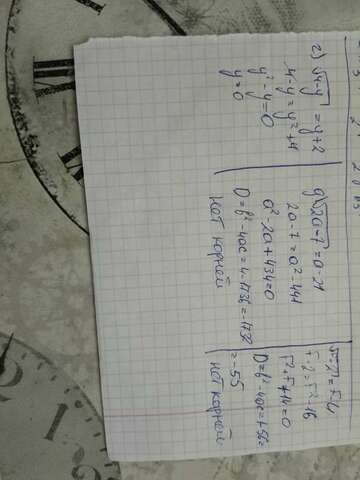 2) √4-y = y+2
4-y = y²+4
y²-y=0
y=0
g) √2a-7 = a-21
2a-7=a²-441
a²-2a+434=0
D=b²-4ac=4-1736=-1732
нет корней
F-2=F²-16
F²-F+14=0
D=b²-4ac=1-56=
=-55
нет корней